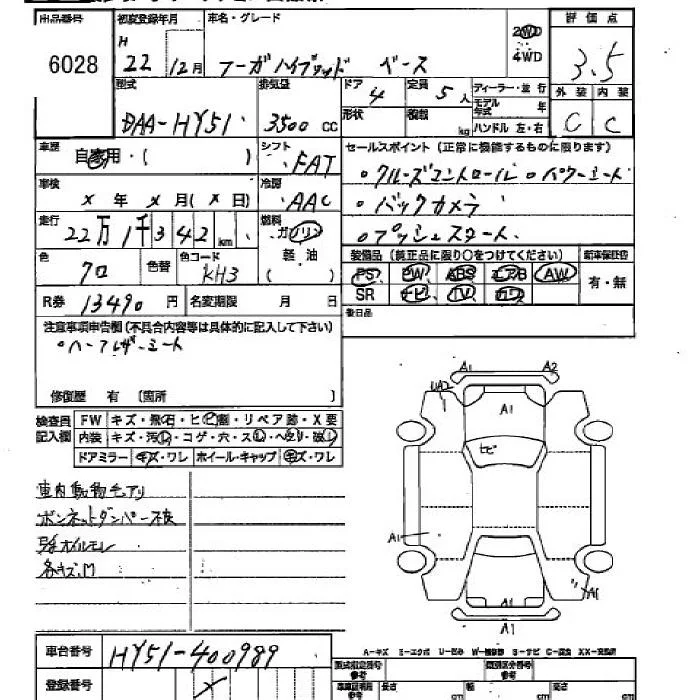 出品番号 初度登録年月 車名・グレード 2WD 評価点
6028 H 22 12月 フーガハイブリッド ベース 4WD 3.5
型式 排気量 ドア 4 定員 5人 ディーラー・並行 外装 内装
DAA-HY51 3500cc 形状 積載 kg モデル年式 年 C C
ハンドル 左・右
車歴 自家用・( ) シフト FAT セールスポイント (正常に機能するものに限ります)
車検 × 年 × 月 (× 日) 冷房 AAC 。クルーズコントロール 。パワーシート
。バックカメラ
走行 22万1千342km 燃料 ガソリン 軽油 ( ) 。プッシュスタート
色 クロ 色替 色コード KH3 装備品 (純正品に限り○をつけてください) 新車保証書
PS PW ABS エアB AW 有・無
R券 13490円 名変期限 月 日 SR ナビ TV カワ
後日品
注意事項申告欄 (不具合内容等は具体的に記入して下さい)
。ハーフレザーシート
修復歴 有 〔箇所 〕
検査員記入欄 FW キズ・飛石・ヒビ割・リペア跡・X要
内装 キズ・汚レ・コゲ・穴・スレ・ヘタリ・破レ
ドアミラー キズ・ワレ ホイール・キャップ キズ・ワレ
車内動物毛アリ
ボンネットダンパー不良
オイルモレ
各キズ、M
A1 A2
UA2
A1
ヒビ
A1
A1
A1
A1
車台番号 HY51-400989
A-キズ U-凹み
登録番号 ×
型式指定番号 参考 類別区分番号 参考
長さ cm 幅 cm 高さ cm